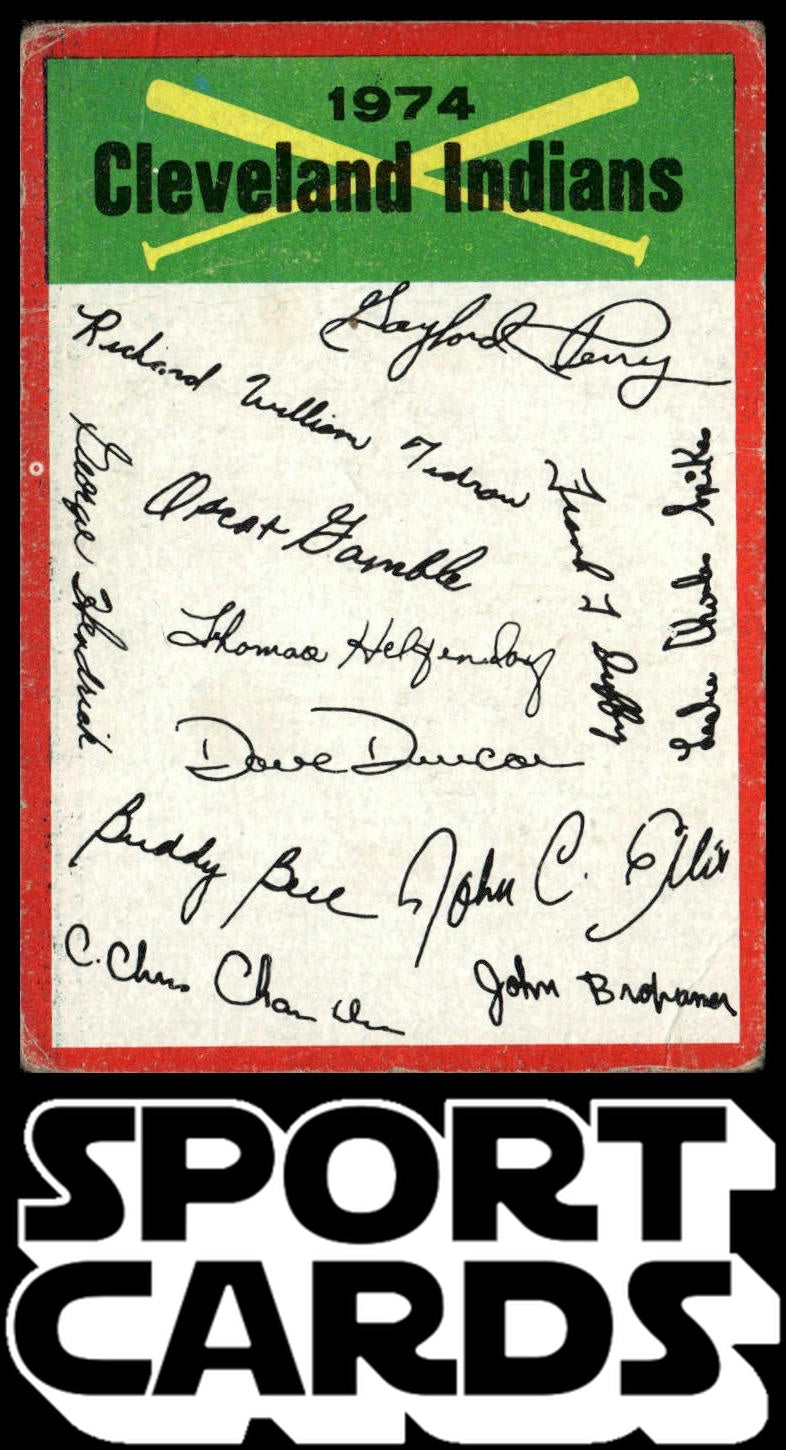 1974
Cleveland Indians
Gaylord Perry
Richard William Tidrow
George Hendrick
Oscar Gamble
Frank T Duffy
Leslie Charles Spikes
Thomas Hilgendorf
Dave Duncan
Buddy Bell
John C. Ellis
C. Chris Chambliss
John Brohamer
SPORT
CARDS